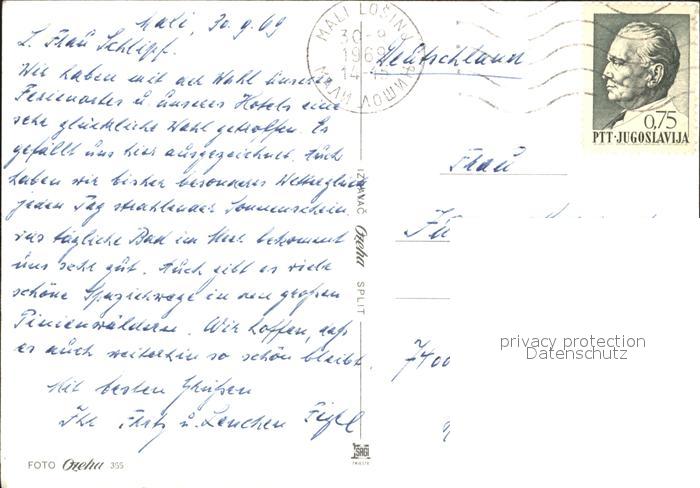 Mali, 30.9.69
L. Frau Schlipf.
Wir haben mit der Wahl unseres
Ferienortes u. unseres Hotels eine
sehr glückliche Wahl getroffen. Es
gefällt uns hier ausgezeichnet. Auch
haben wir bisher besonderes Wetterglück
jeden Tag strahlender Sonnenschein
das tägliche Bad im Meer bekommt
uns sehr gut. Auch gibt es viele
schöne Spazierwege in den großen
Pinienwäldern. Wir hoffen, daß
es auch weiterhin so schön bleibt.
Mit besten Grüßen
Ihr Fritz u. Lenchen
FOTO Ozeha 355
IZDAVAČ Ozeha SPLIT
SAGI
TRIESTE
MALI LOŠINJ
30-9
1969
14
Deutschland
0,75
PTT·JUGOSLAVIJA
Frau
7400
privacy protection
Datenschutz